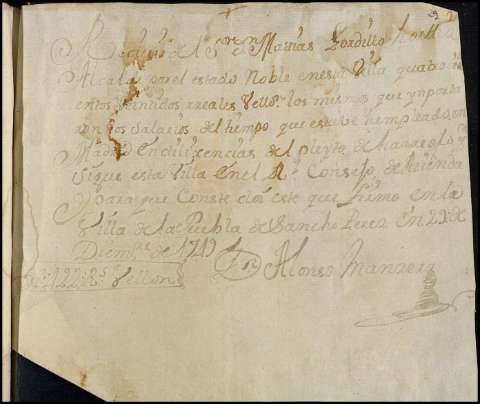 Recivi del Sr. Dn. Mathias Gordillo
Alcalde por el estado Noble en esta Villa quatrozi
entos Veintidos rreales Vellon los mismos que ynporta
ron los Salarios del tiempo que estube empleado en
Madrid en dilixencias del pleyto de
Sigue esta Villa en el Rl. Consejo de hacienda
y para que Conste doi este que firmo en la
Villa de la Puebla de Sancho Perez en 29 de
Diembre. de 1719
422 Rs. Vellon
Fr. Alonso Manzera